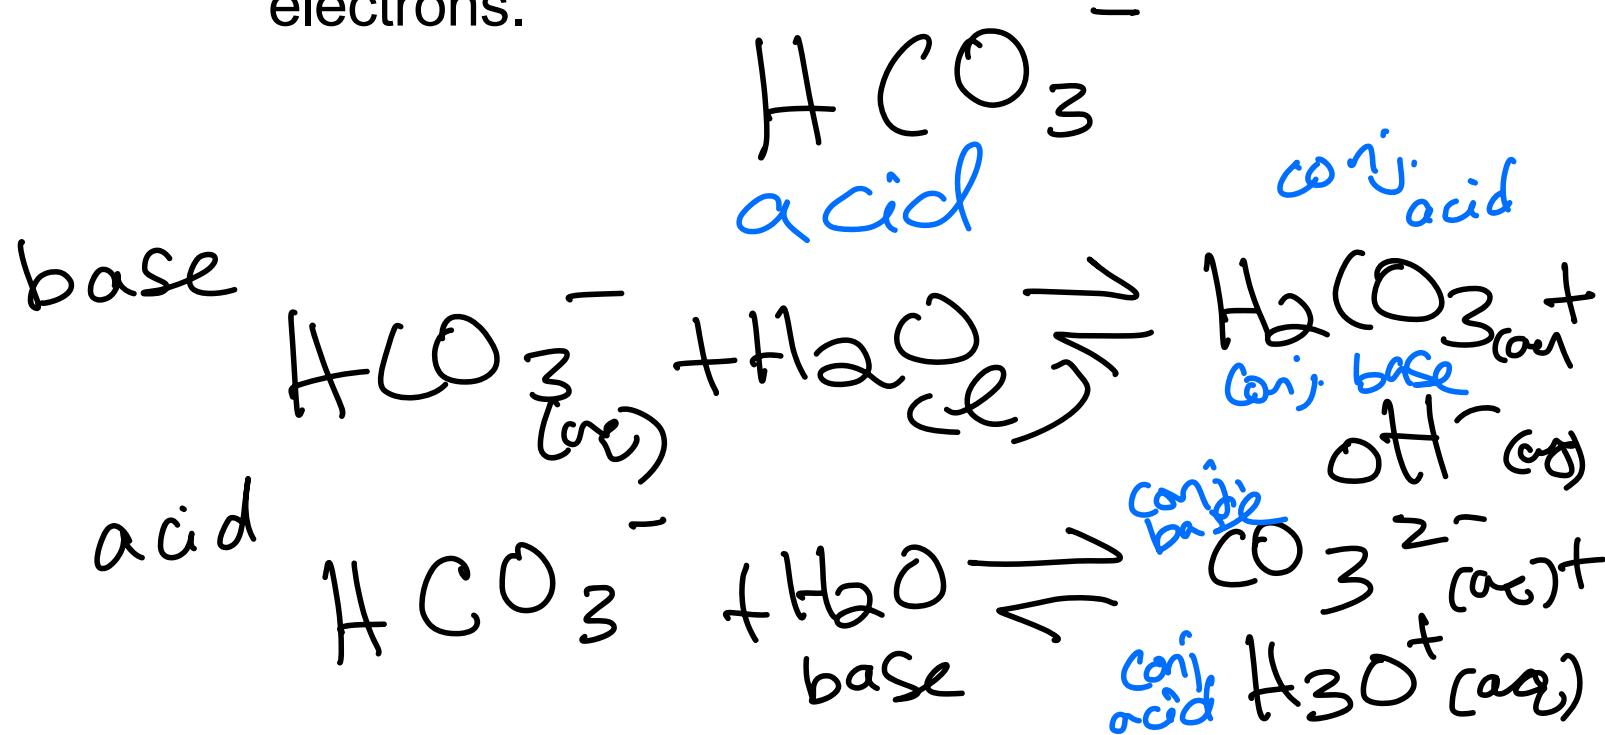 electrons.
HCO3^-
acid
conj. acid
base HCO3^- (aq) + H2O (l) ⇌ H2CO3 (aq) +
conj. base
OH^- (aq)
conj. base
acid HCO3^- + H2O ⇌ CO3^2- (aq) +
base conj acid H3O^+ (aq)